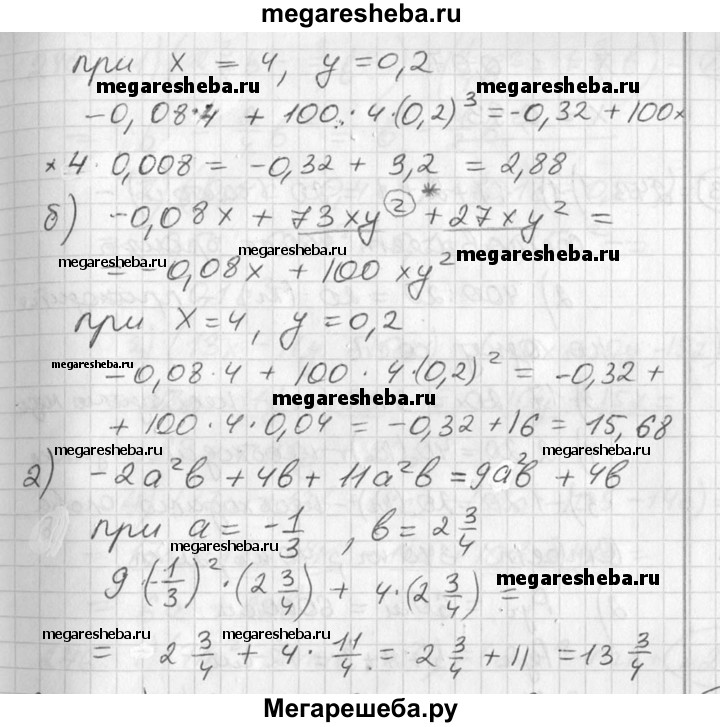 megaresheba.ru
при x = 4, y = 0,2
megaresheba.ru megaresheba.ru
-0,08·4 + 100·4·(0,2)³ = -0,32 + 100×
×4·0,008 = -0,32 + 3,2 = 2,88
б) -0,08x + 73xy² + 27xy² =
megaresheba.ru megaresheba.ru megaresheba.ru
= -0,08x + 100xy²
при x = 4, y = 0,2
megaresheba.ru
-0,08·4 + 100·4·(0,2)² = -0,32 +
megaresheba.ru
+ 100·4·0,04 = -0,32 + 16 = 15,68
megaresheba.ru megaresheba.ru
2) -2a²b + 4b + 11a²b = 9a²b + 4b
при a = -1/3, b = 2 3/4
megaresheba.ru
9·(-1/3)²·(2 3/4) + 4·(2 3/4) =
megaresheba.ru
megaresheba.ru megaresheba.ru
= 2 3/4 + 4·11/4 = 2 3/4 + 11 = 13 3/4
Мегарешеба.ру